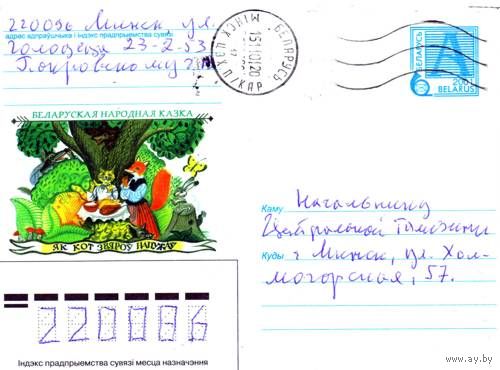 220096 Минск ул.
адрас адпраўшчыка і індэкс прадпрыемства сувязі
Голодеда 23-2-53
Покровскому
БЕЛАРУСКАЯ НАРОДНАЯ КАЗКА
ЯК КОТ ЗВЯРОЎ НАПУЖАЎ
МІНСК БЕЛАРУСЬ
BELARUS
БЕЛАРУСЬ
А
2001
BELARUS
Каму Начальнику
Центральной Таможни
Куды г Минск, ул. Хол-
могорская, 57.
220086
Індэкс прадпрыемства сувязі месца назначэння
www.ay.by